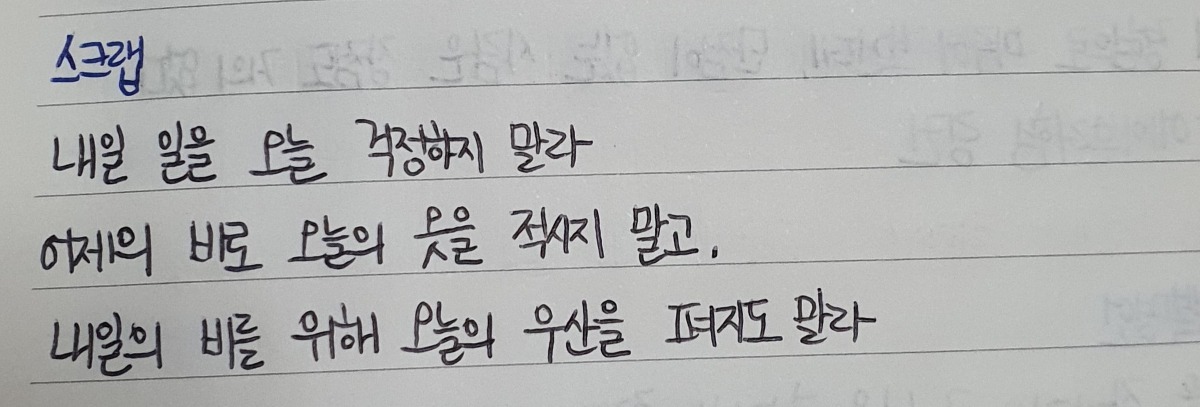 스크랩
내일 일을 오늘 걱정하지 말라
어제의 비로 오늘의 옷을 적시지 말고,
내일의 비를 위해 오늘의 우산을 펴지도 말라